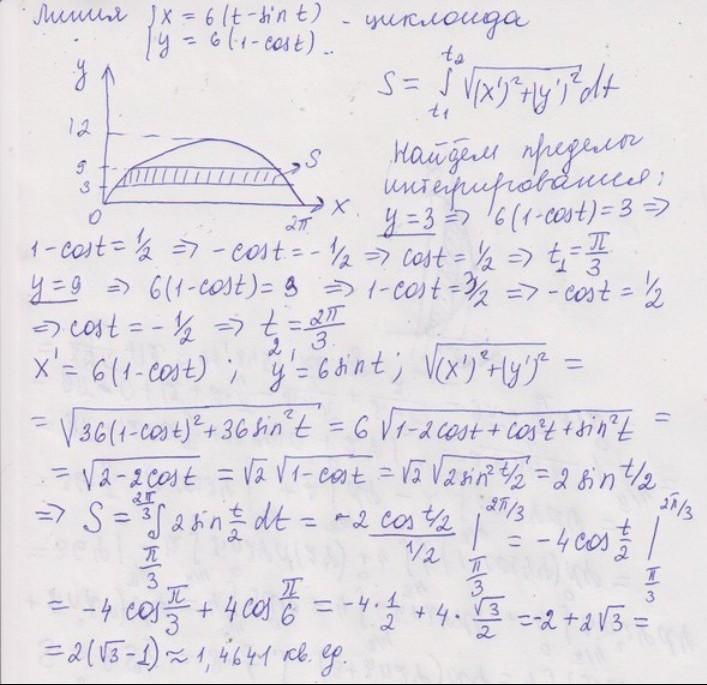 Линия { x = 6(t - sin t) - циклоида
{ y = 6(1 - cos t) ..
y
12
9
3
0
2π
x
S
S = ∫_{t₁}^{t₂} √((x')² + (y')²) dt
Найдем пределы
интегрирования:
y = 3 => 6(1 - cos t) = 3 =>
1 - cos t = 1/2 => - cos t = - 1/2 => cos t = 1/2 => t₁ = π/3
y = 9 => 6(1 - cos t) = 9 => 1 - cos t = 3/2 => - cos t = 1/2
=> cos t = - 1/2 => t₂ = 2π/3
x' = 6(1 - cos t) , y' = 6 sin t ; √((x')² + (y')²) =
= √(36(1 - cos t)² + 36 sin² t) = 6 √(1 - 2cos t + cos² t + sin² t) =
= √(2 - 2cos t) = √2 √(1 - cos t) = √2 √(2 sin² t/2) = 2 sin t/2
=> S = ∫_{π/3}^{2π/3} 2 sin t/2 dt = - 2 (cos t/2)/(1/2) |_{π/3}^{2π/3} = - 4 cos t/2 |_{π/3}^{2π/3}
= - 4 cos π/3 + 4 cos π/6 = - 4 · 1/2 + 4 · √3/2 = - 2 + 2√3 =
= 2(√3 - 1) ≈ 1,4641 кв. ед.